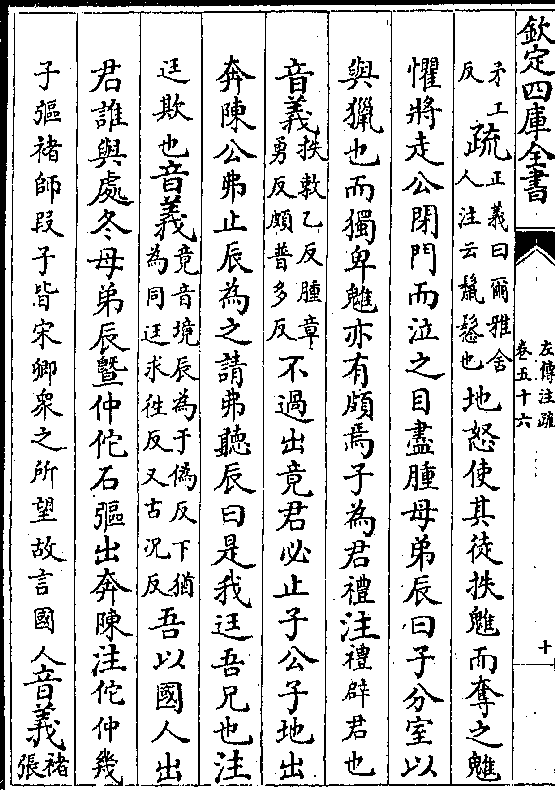 欽定四庫全書
左傳注疏
卷五十六
十
矛工
反
疏
正義曰爾雅舍
人注云鬛鬉也
地怒使其徒抶魋而奪之魋
懼將走公閉門而泣之目盡腫母弟辰曰子分室以
與獵也而獨卑魋亦有頗焉子為君禮注禮辟君也
音義
抶敕乙反腫章
勇反頗普多反
不過出竟君必止子公子地出
奔陳公弗止辰為之請弗聽辰曰是我迋吾兄也注
迋欺也音義
竟音境辰為于偽反下猶
為同迋求徃反又古况反
吾以國人出
君誰與處冬母弟辰暨仲佗石彄出奔陳注佗仲幾
子彄褚師段子皆宋卿衆之所望故言國人音義
褚
張